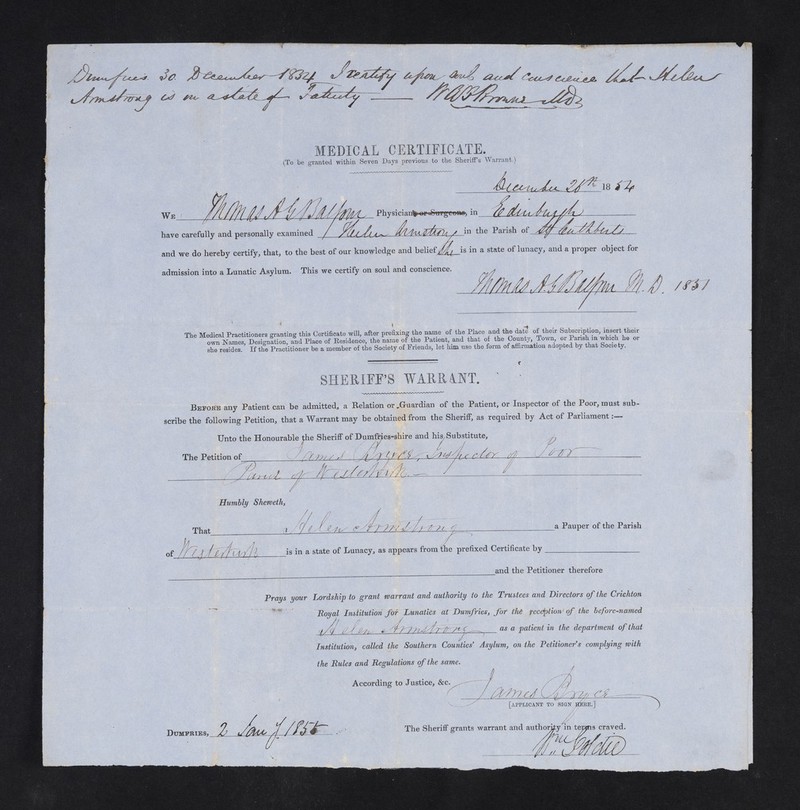 Dumfries 30 December 1854 I certify upon soul and conscience that Helen
Armstrong is in a state of Fatuity — W A F Browne MD
MEDICAL CERTIFICATE.
(To be granted within Seven Days previous to the Sheriff's Warrant.)
December 28th 1854
WE Thomas A G Balfour Physicians or Surgeons, in Edinburgh
have carefully and personally examined Helen Armstrong in the Parish of St Cuthberts
and we do hereby certify, that, to the best of our knowledge and belief She is in a state of lunacy, and a proper object for
admission into a Lunatic Asylum. This we certify on soul and conscience.
Thomas A G Balfour M.D. 1851
The Medical Practitioners granting this Certificate will, after prefixing the name of the Place and the date of their Subscription, insert their
own Names, Designation, and Place of Residence, the name of the Patient, and that of the County, Town, or Parish in which he or
she resides. If the Practitioner be a member of the Society of Friends, let him use the form of affirmation adopted by that Society.
SHERIFF'S WARRANT.
BEFORE any Patient can be admitted, a Relation or Guardian of the Patient, or Inspector of the Poor, must sub-
scribe the following Petition, that a Warrant may be obtained from the Sheriff, as required by Act of Parliament:—
Unto the Honourable the Sheriff of Dumfries-shire and his Substitute,
The Petition of James Bryce, Inspector of Poor
of Westerkirk
Humbly Sheweth,
That Helen Armstrong a Pauper of the Parish
of Westerkirk is in a state of Lunacy, as appears from the prefixed Certificate by
and the Petitioner therefore
Prays your Lordship to grant warrant and authority to the Trustees and Directors of the Crichton
Royal Institution for Lunatics at Dumfries, for the reception of the before-named
Helen Armstrong as a patient in the department of that
Institution, called the Southern Counties' Asylum, on the Petitioner's complying with
the Rules and Regulations of the same.
According to Justice, &c.
James Bryce
[APPLICANT TO SIGN HERE.]
DUMFRIES, 2 Jany 1855 The Sheriff grants warrant and authority in terms craved.
Wm Goldie